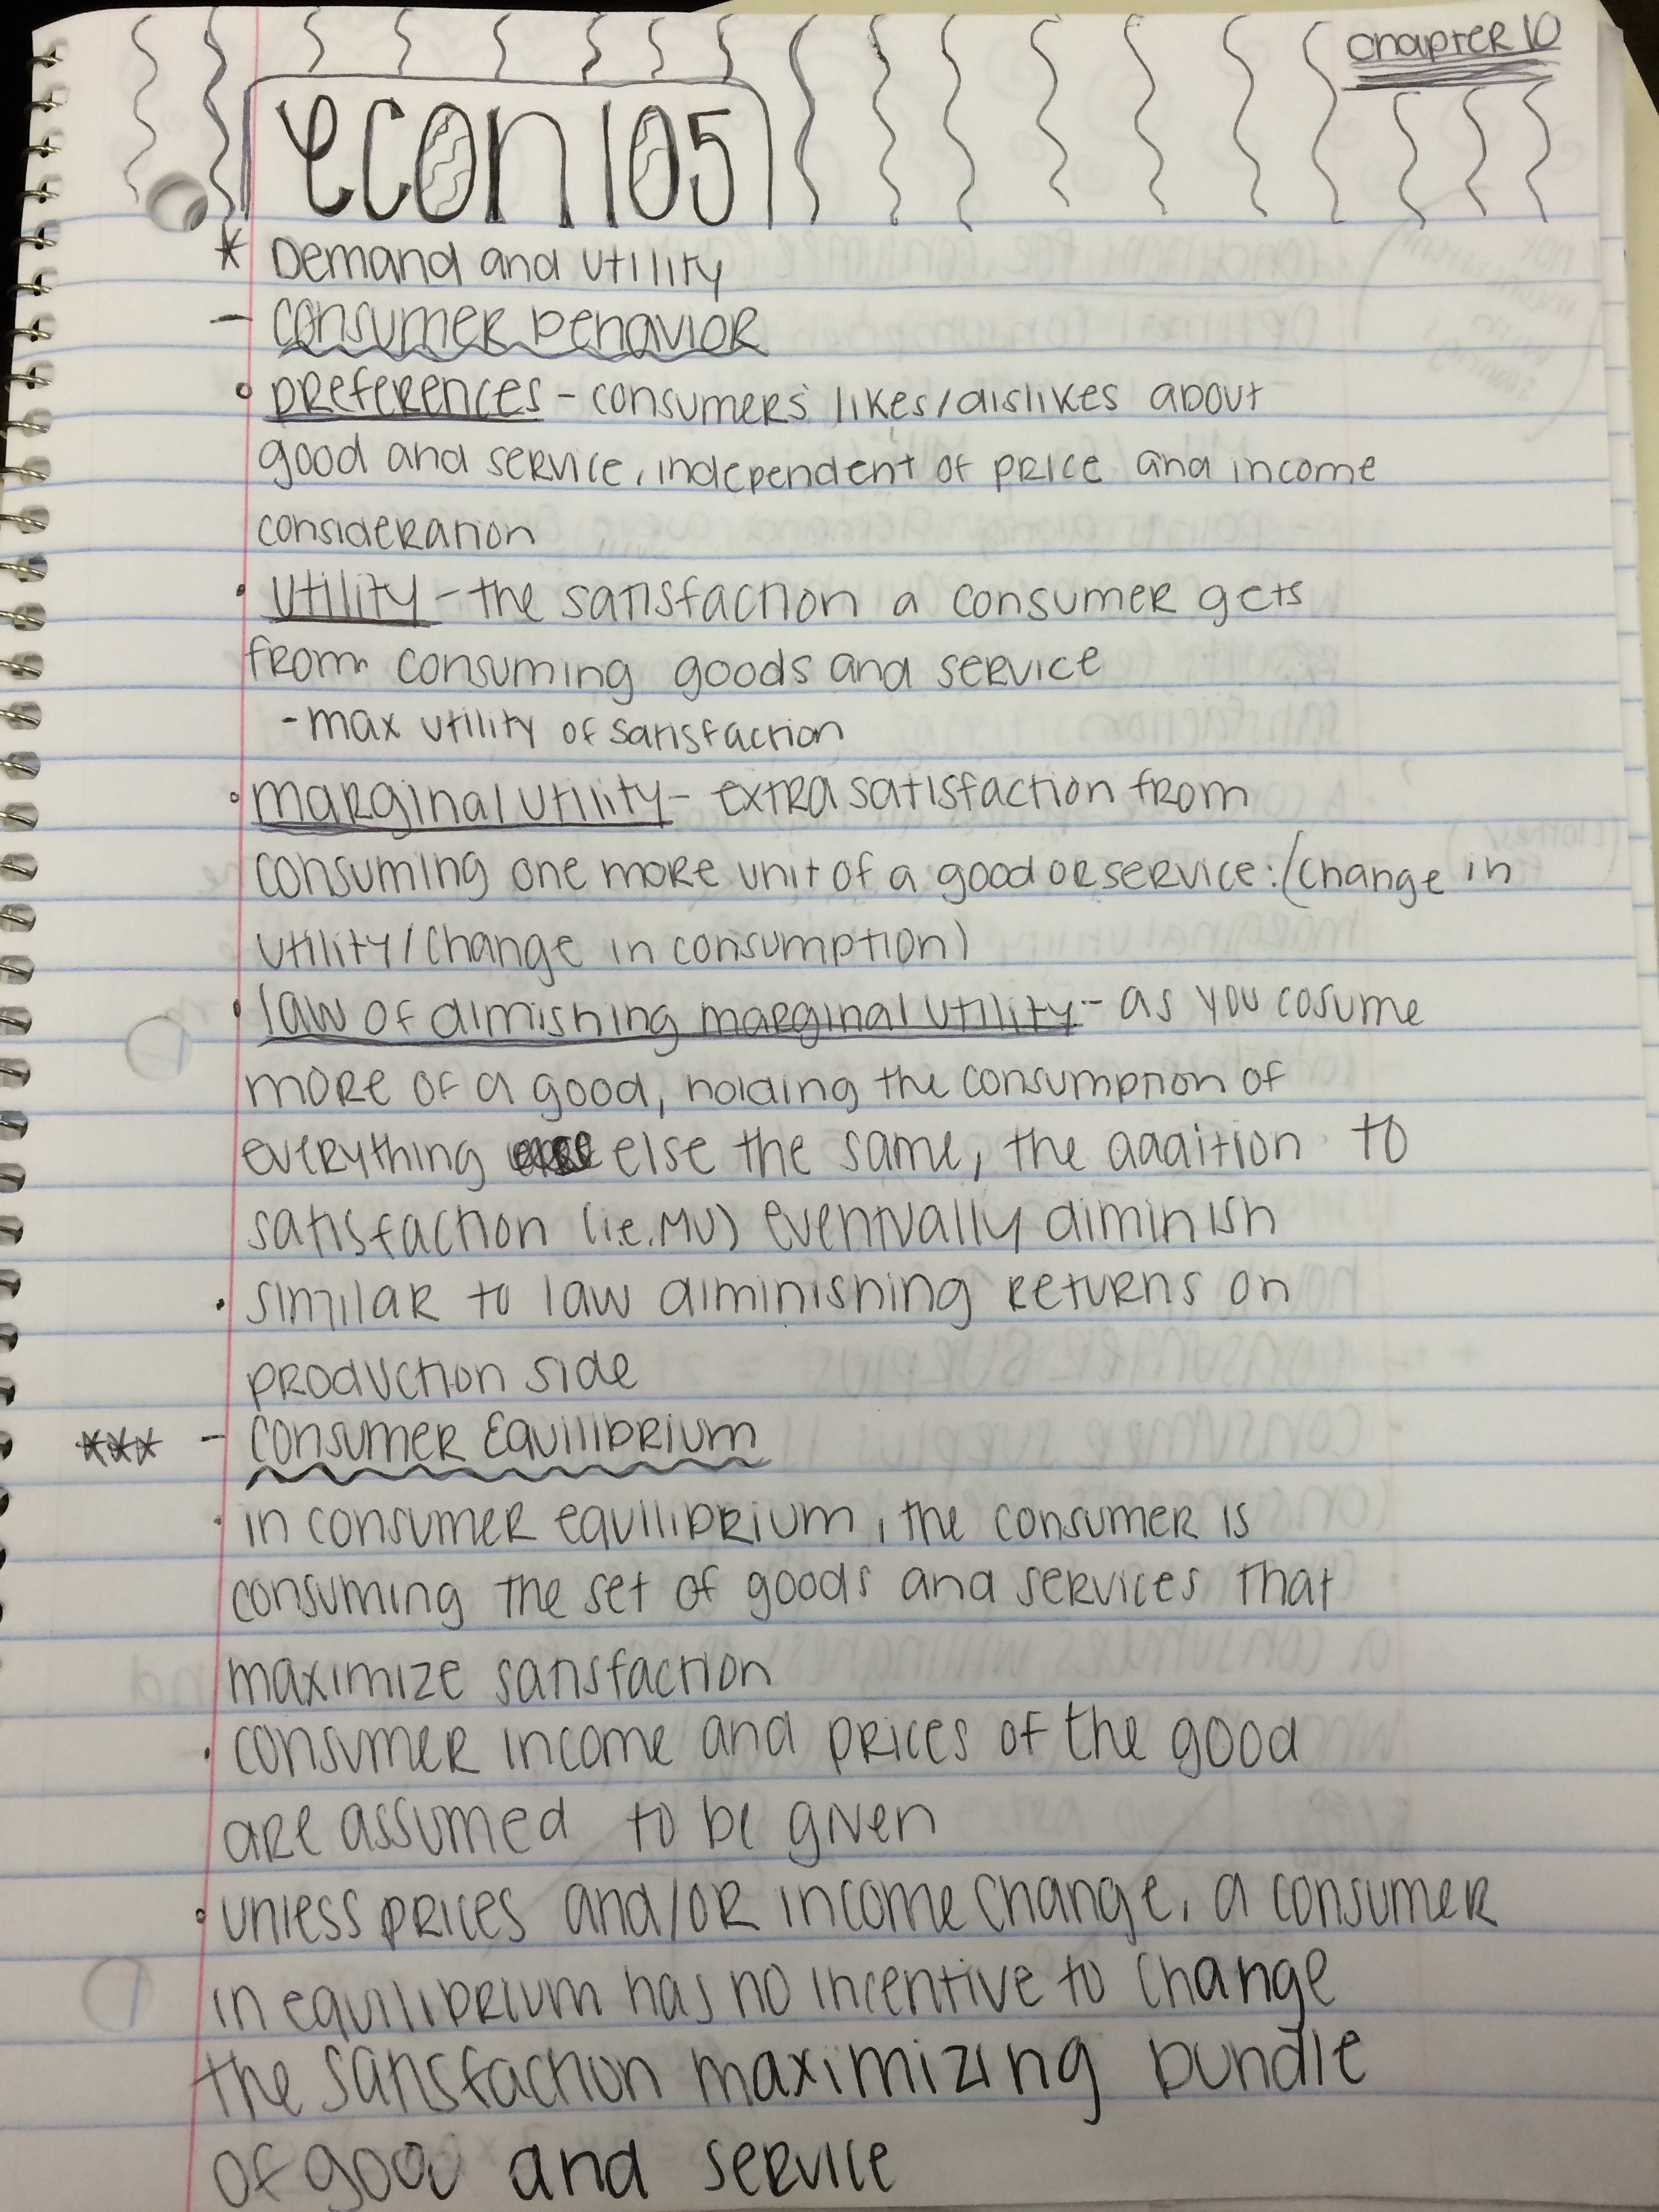 Chapter 10
econ 105
* Demand and utility
- consumer behavior
◦ preferences - consumers' likes/dislikes about
good and service, independent of price and income
consideration
• utility - the satisfaction a consumer gets
from consuming goods and service
- max utility of satisfaction
◦ marginal utility - extra satisfaction from
consuming one more unit of a good or service: (change in
utility/change in consumption)
• law of dimishing marginal utility - as you cosume
more of a good, holding the consumption of
everything else the same, the addition to
satisfaction (i.e. MU) eventually diminish
• similar to law diminishing returns on
production side
*** - consumer Equilibrium
• in consumer equilibrium, the consumer is
consuming the set of goods and services that
maximize satisfaction
• consumer income and prices of the good
are assumed to be given
◦ unless prices and/or income change, a consumer
in equilibrium has no incentive to change
the satisfaction maximizing bundle
of good and service